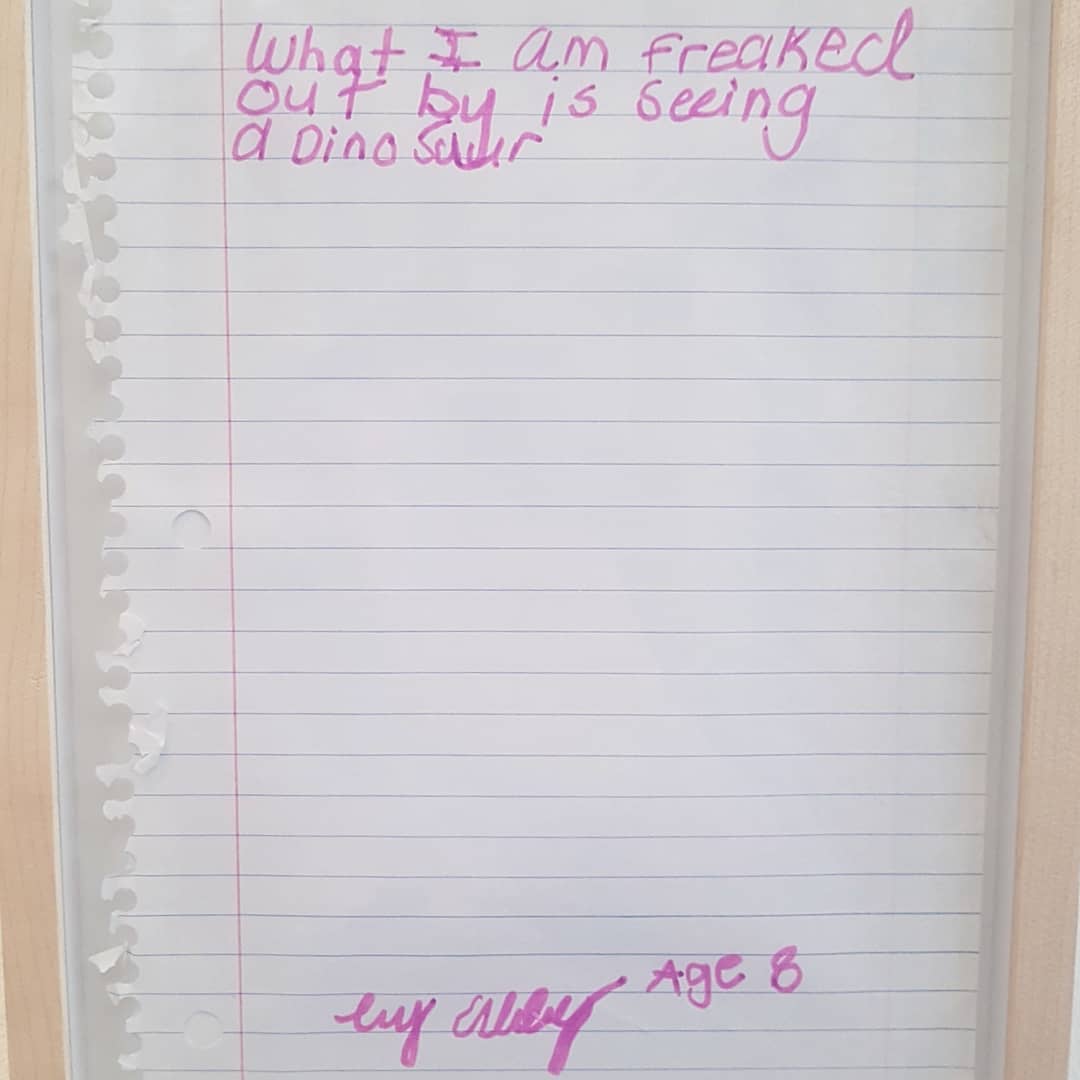 What I am freaked
out by is seeing
a Dino Sauer
Age 8